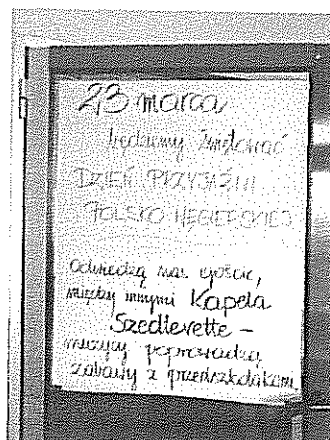 23 marca
będziemy świętować
DZIEŃ PRZYJAŹNI
POLSKO WĘGIERSKIEJ
Odwiedzą nas goście,
między innymi Kapela
Szedlerette -
muzycy poprowadzą
zabawy z przedszkolakami